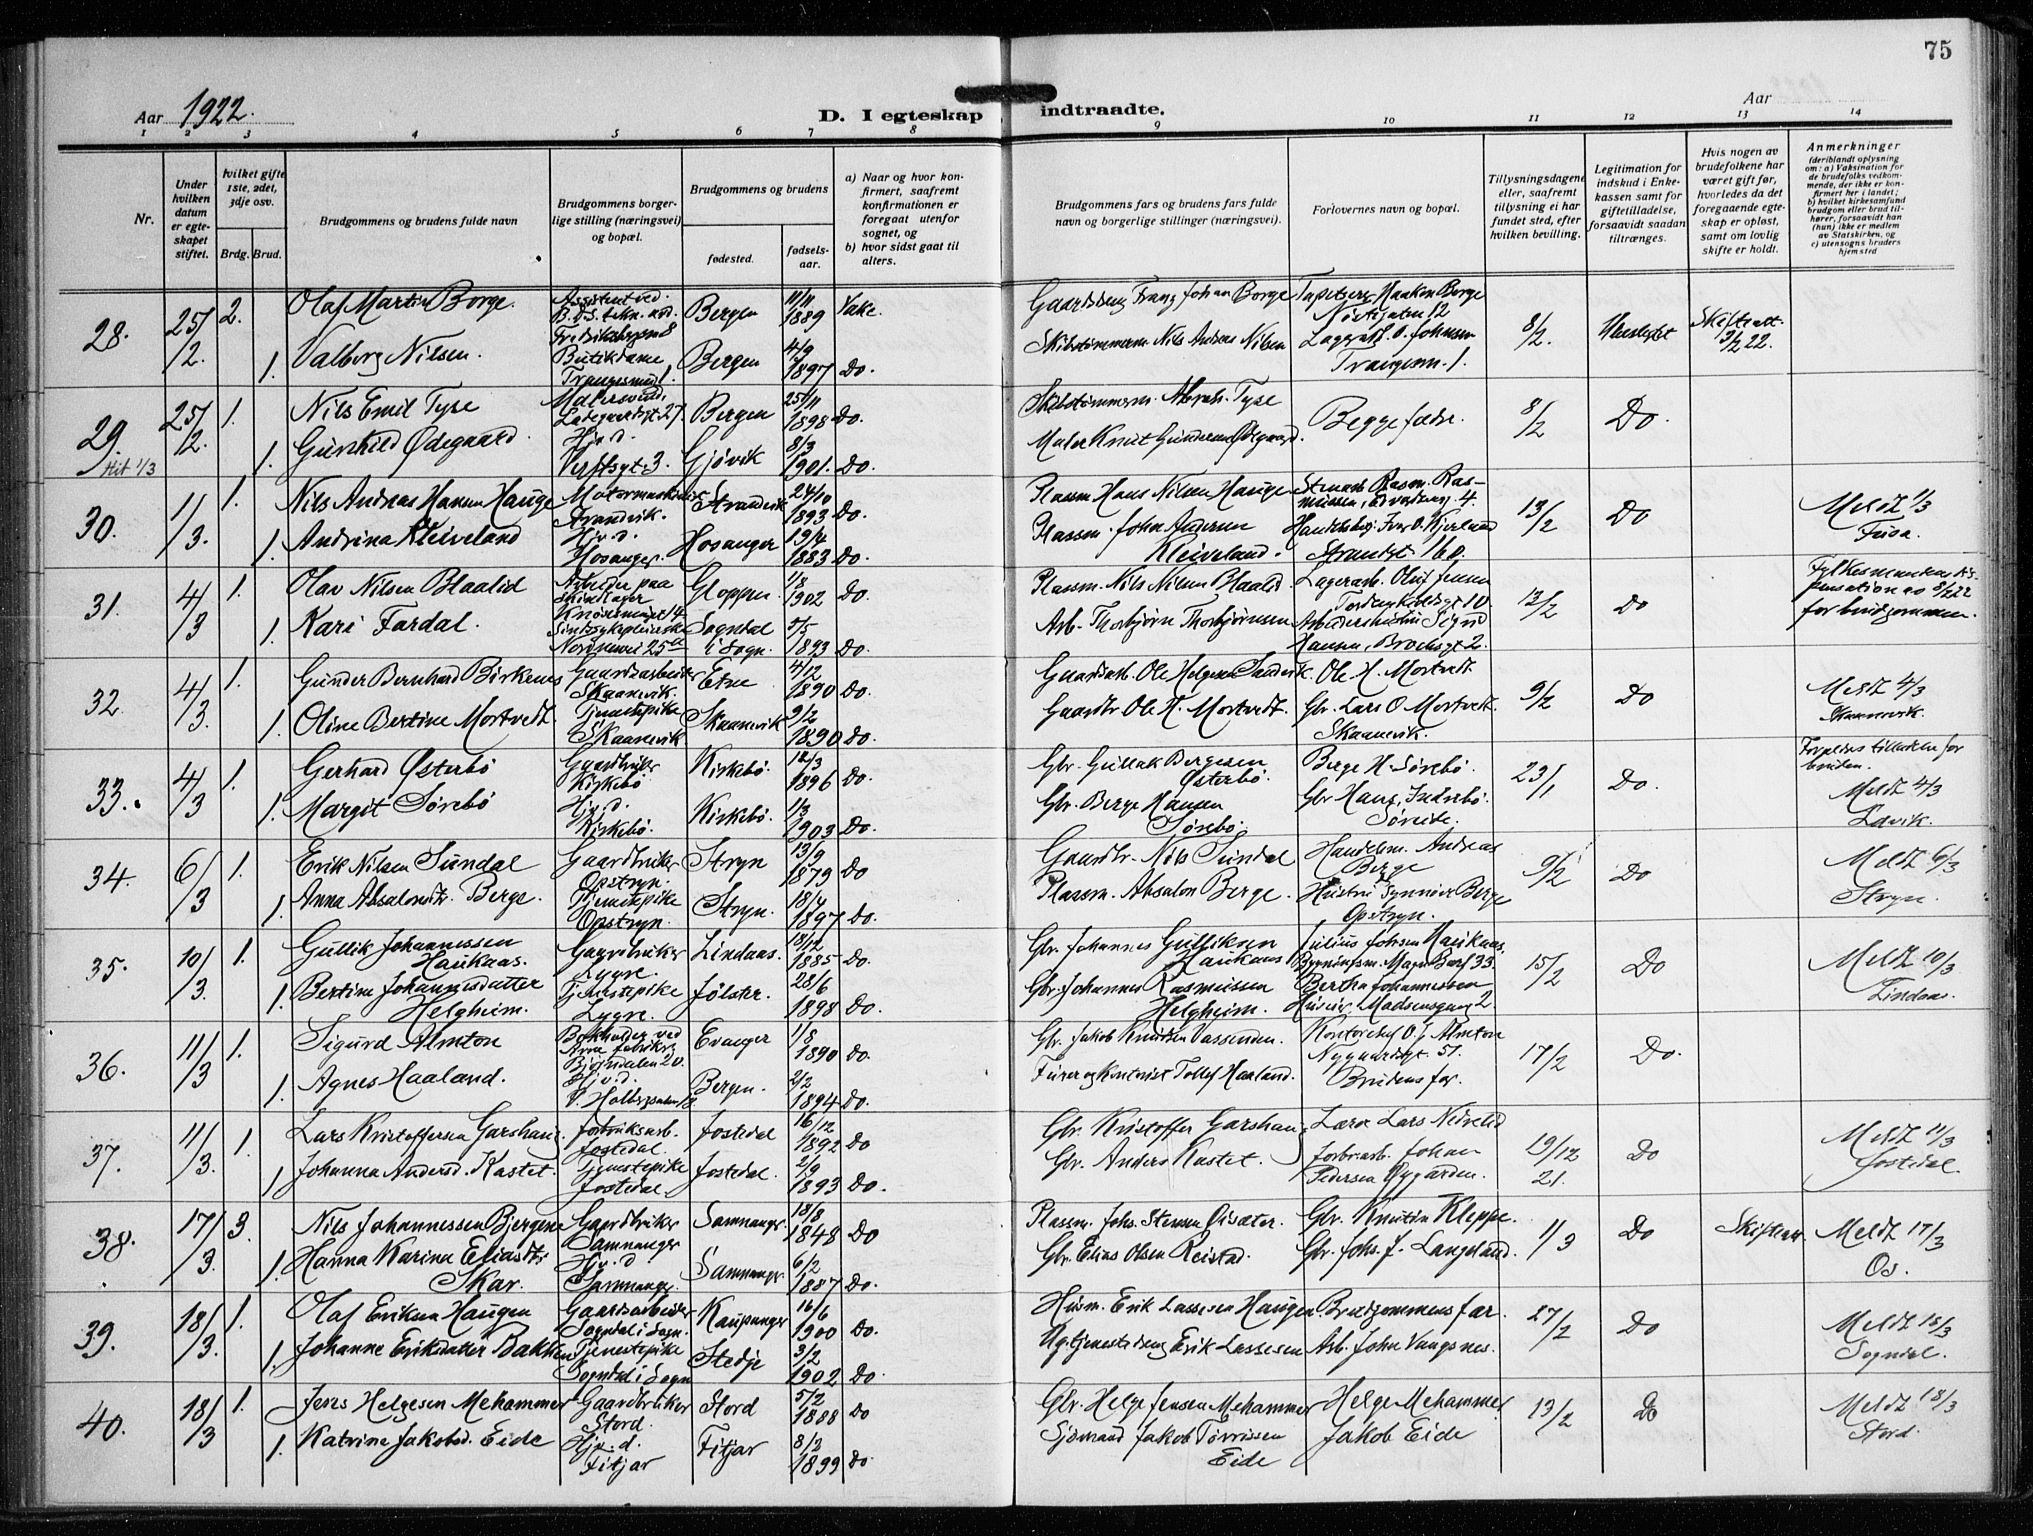 75
Aar 1922.
D. I egteskap indtraadte.
Aar
1 2 3 4 5 6 7 8 9 10 11 12 13 14
Nr.
Under hvilken datum er egteskapet stiftet.
hvilket gifte 1ste, 2det, 3dje osv.
Brdg. Brud.
Brudgommens og brudens fulde navn
Brudgommens borgerlige stilling (næringsvei) og bopæl.
Brudgommens og brudens
fødested.
fødselsaar.
a) Naar og hvor konfirmert, saafremt konfirmationen er foregaat utenfor sognet, og
b) hvor sidst gaat til alters.
Brudgommens fars og brudens fars fulde navn og borgerlige stillinger (næringsvei).
Forlovernes navn og bopæl.
Tillysningsdagene eller, saafremt tillysning ei har fundet sted, efter hvilken bevilling.
Legitimation for indskud i Enkekassen samt for giftetilladelse, forsaavidt saadan tiltrænges.
Hvis nogen av brudefolkene har været gift før, hvorledes da det foregaaende egteskap er opløst, samt om lovlig skifte er holdt.
Anmerkninger
(deriblandt oplysning om: a) Vaksination for de brudefolks vedkommende, der ikke er konfirmert her i landet; b) hvilket kirkesamfund brudgom eller brud tilhører, forsaavidt han (hun) ikke er medlem av Statskirken, og c) utensogns bruders hjemsted
28. 25/2. 2. Olaf Martin Borge. Assistent ved B.D.S. tekn. avd. Bergen 11/11 1889 Vake. Franz Johan Borge Haakon Borge 8/2. Ubeslegtet Skifteatt. 3/2 22.
1. Valborg Nilsen. Butikdame Bergen 4/9 1897 Do. Skibstømmerm. Nils Anders Nilsen
29. 25/2. 1. Nils Emil Tyse Ladegaardsgt. 27. Bergen 25/11 1898 Do. Skibstømmerm. Abrah. Tyse Begge fædre. 8/2 Do.
Hit 1/3
1. Gunhild Ødegaard. Hjv. d. Verftsgt. 3. Gjøvik 8/3 1901. Do. Maler Knut Gundersen Ødegaard.
30. 1/3. 1. Nils Andreas Hansen Hauge Strandvik. Strandvik 24/10 1893 Do. Plassm. Hans Nilsen Hauge 13/2 Do Meldt 1/3 Fusa.
1. Andrina Kleiveland Hjv. d. Hosanger. Hosanger 19/4 1883 Do. Plassm. John Andersen Kleiveland. Strandgt. 160.
31. 4/3 1. Olav Nilsen Blaalid Arbeider paa Skindlager Gloppen 1/8 1902 Do. Plassm. Nils Nilsen Blaalid Lagerarb. Oluf Jensen 12/2 Do Fylkesmandens dispensation av 8/2 22 for brudgommen.
1. Kari Fardal. Sindssykepleierske Sogndal i Sogn. 5/5 1893 Do. Arb. Thorbjørn Thorbjørnsen Hansen, Brochsgt 2.
32. 4/3. 1. Gunder Bernhard Birkenes Gaardsarbeider Skaanevik. Etne 4/12 1890 Do. Gaardarb. Ole Helgesen Sandvik. Ole H. Mortvedt 9/2 Do Meldt 4/3 Skaanevik.
1. Oline Bertine Mortvedt. Tjenestepike Skaanevik Skaanevik 9/2 1890 Do. Gaardbr Ole H. Mortvedt. Gbr. Lars O Mortvedt. Skaanevik.
33. 4/3 1. Gerhard Østerbø Gaardbruker Kirkebø Kirkebø. 12/3 1896 Do. Gbr. Gullak Bergesen Østerbø. Berge H. Sørebø. 23/1 Do. Forældres tilladelse for bruden. Meldt 4/3 Lavik.
1. Margit Sørebø Hjv. d. Kirkebø. Kirkebø. 1/3 1903 Do. Gbr. Berge Hansen Sørebø.
34. 6/3 1. Erik Nilsen Sundal Gaardbruker Opstryn. Stryn 13/9 1879 Do Gaardbr. Nils Sundal Handelsm. Andreas Berge 9/2 Do Meldt 6/3 Stryn.
1. Anna Absalonsdtr. Berge. Tjenestepike Opstryn. Stryn. 18/4 1897 Do. Plassm. Absalon Berge. Hustru Synnøve Berge Opstryn.
35. 10/3. 1. Gullik Johannessen Haukaas. Gaardbruker Lygre. Lindaas. 18/12 1885 Do. Gbr. Johannes Gulliksen Haukaas 15/2 Do Meldt 10/3 Lindaas.
1. Bertine Johannesdatter Helgheim. Tjenestepike Lygre. Jølster. 28/6 1898 Do. Gbr. Johannes Rasmussen Helgheim. Bertha Johannessen
36. 11/3 1. Sigurd Almton Bokholder ved Arne fabriker Evanger 1/8 1890 Do. Gbr. Jakob Knudsen Vassenden. Kontorchef O. J. Almton Nygaardsgt. 51. 17/2 Do.
1. Agnes Haaland. Hjv. d. Bergen. 2/2 1894 Do. Tollef Haaland. Brudens far.
37. 11/3. 1. Lars Kristoffersen Garshaug Fabriksarb. Jostedal. Jostedal 16/12 1892 Do Gbr. Kristoffer Garshaug Lærer Lars Nedrelid 19/12 21. Do Meldt 11/3 Jostedal.
1. Johanna Andersd. Kastet. Tjenestepike Jostedal. Jostedal. 2/9 1893 Do. Gbr. Anders Kastet. Johan Pedersen Øygarden.
38. 17/3. 3. Nils Johannessen Bjergene Gaardbruker Samnanger Samnanger. 18/8 1848 Do Plassm. Johs. Stensen Gbr. Knut Kleppe. 1/3 Do Skifteatt Meldt 17/3 Os.
1. Hanna Karina Eliasdtr. Skar. Hjv. d Samnanger. Samnanger. 6/2 1887 Do. Gbr. Elias Olsen Reistad. Gbr. Johs. J. Langeland.
39. 18/3. 1. Olaf Eriksen Haugen Gaardsarbeider Sogndal i Sogn. Kaupanger 16/6 1900 Do. Husm. Erik Lassesen Haugen. Brudgommens far. 27/2 Do Meldt 18/3 Sogndal.
1. Johanne Eriksdatter Bakken Tjenestepike Sogndal i Sogn Stedje 3/2 1902 Do. Erik Lassesen Arb. John Vangsnes.
40. 18/3 1. Jens Helgesen Mehammer Gaardbruker Stord. Stord 5/2 1888 Do Gbr. Helge Jensen Mehammer Helge Mehammer. 13/2 Do Meldt 18/3 Stord.
1. Katrine Jakobsd. Eide Hjv. d. Fitjar Fitjar 8/2 1899 Do. Sjømand Jakob Tørrisen Eide Jakob Eide